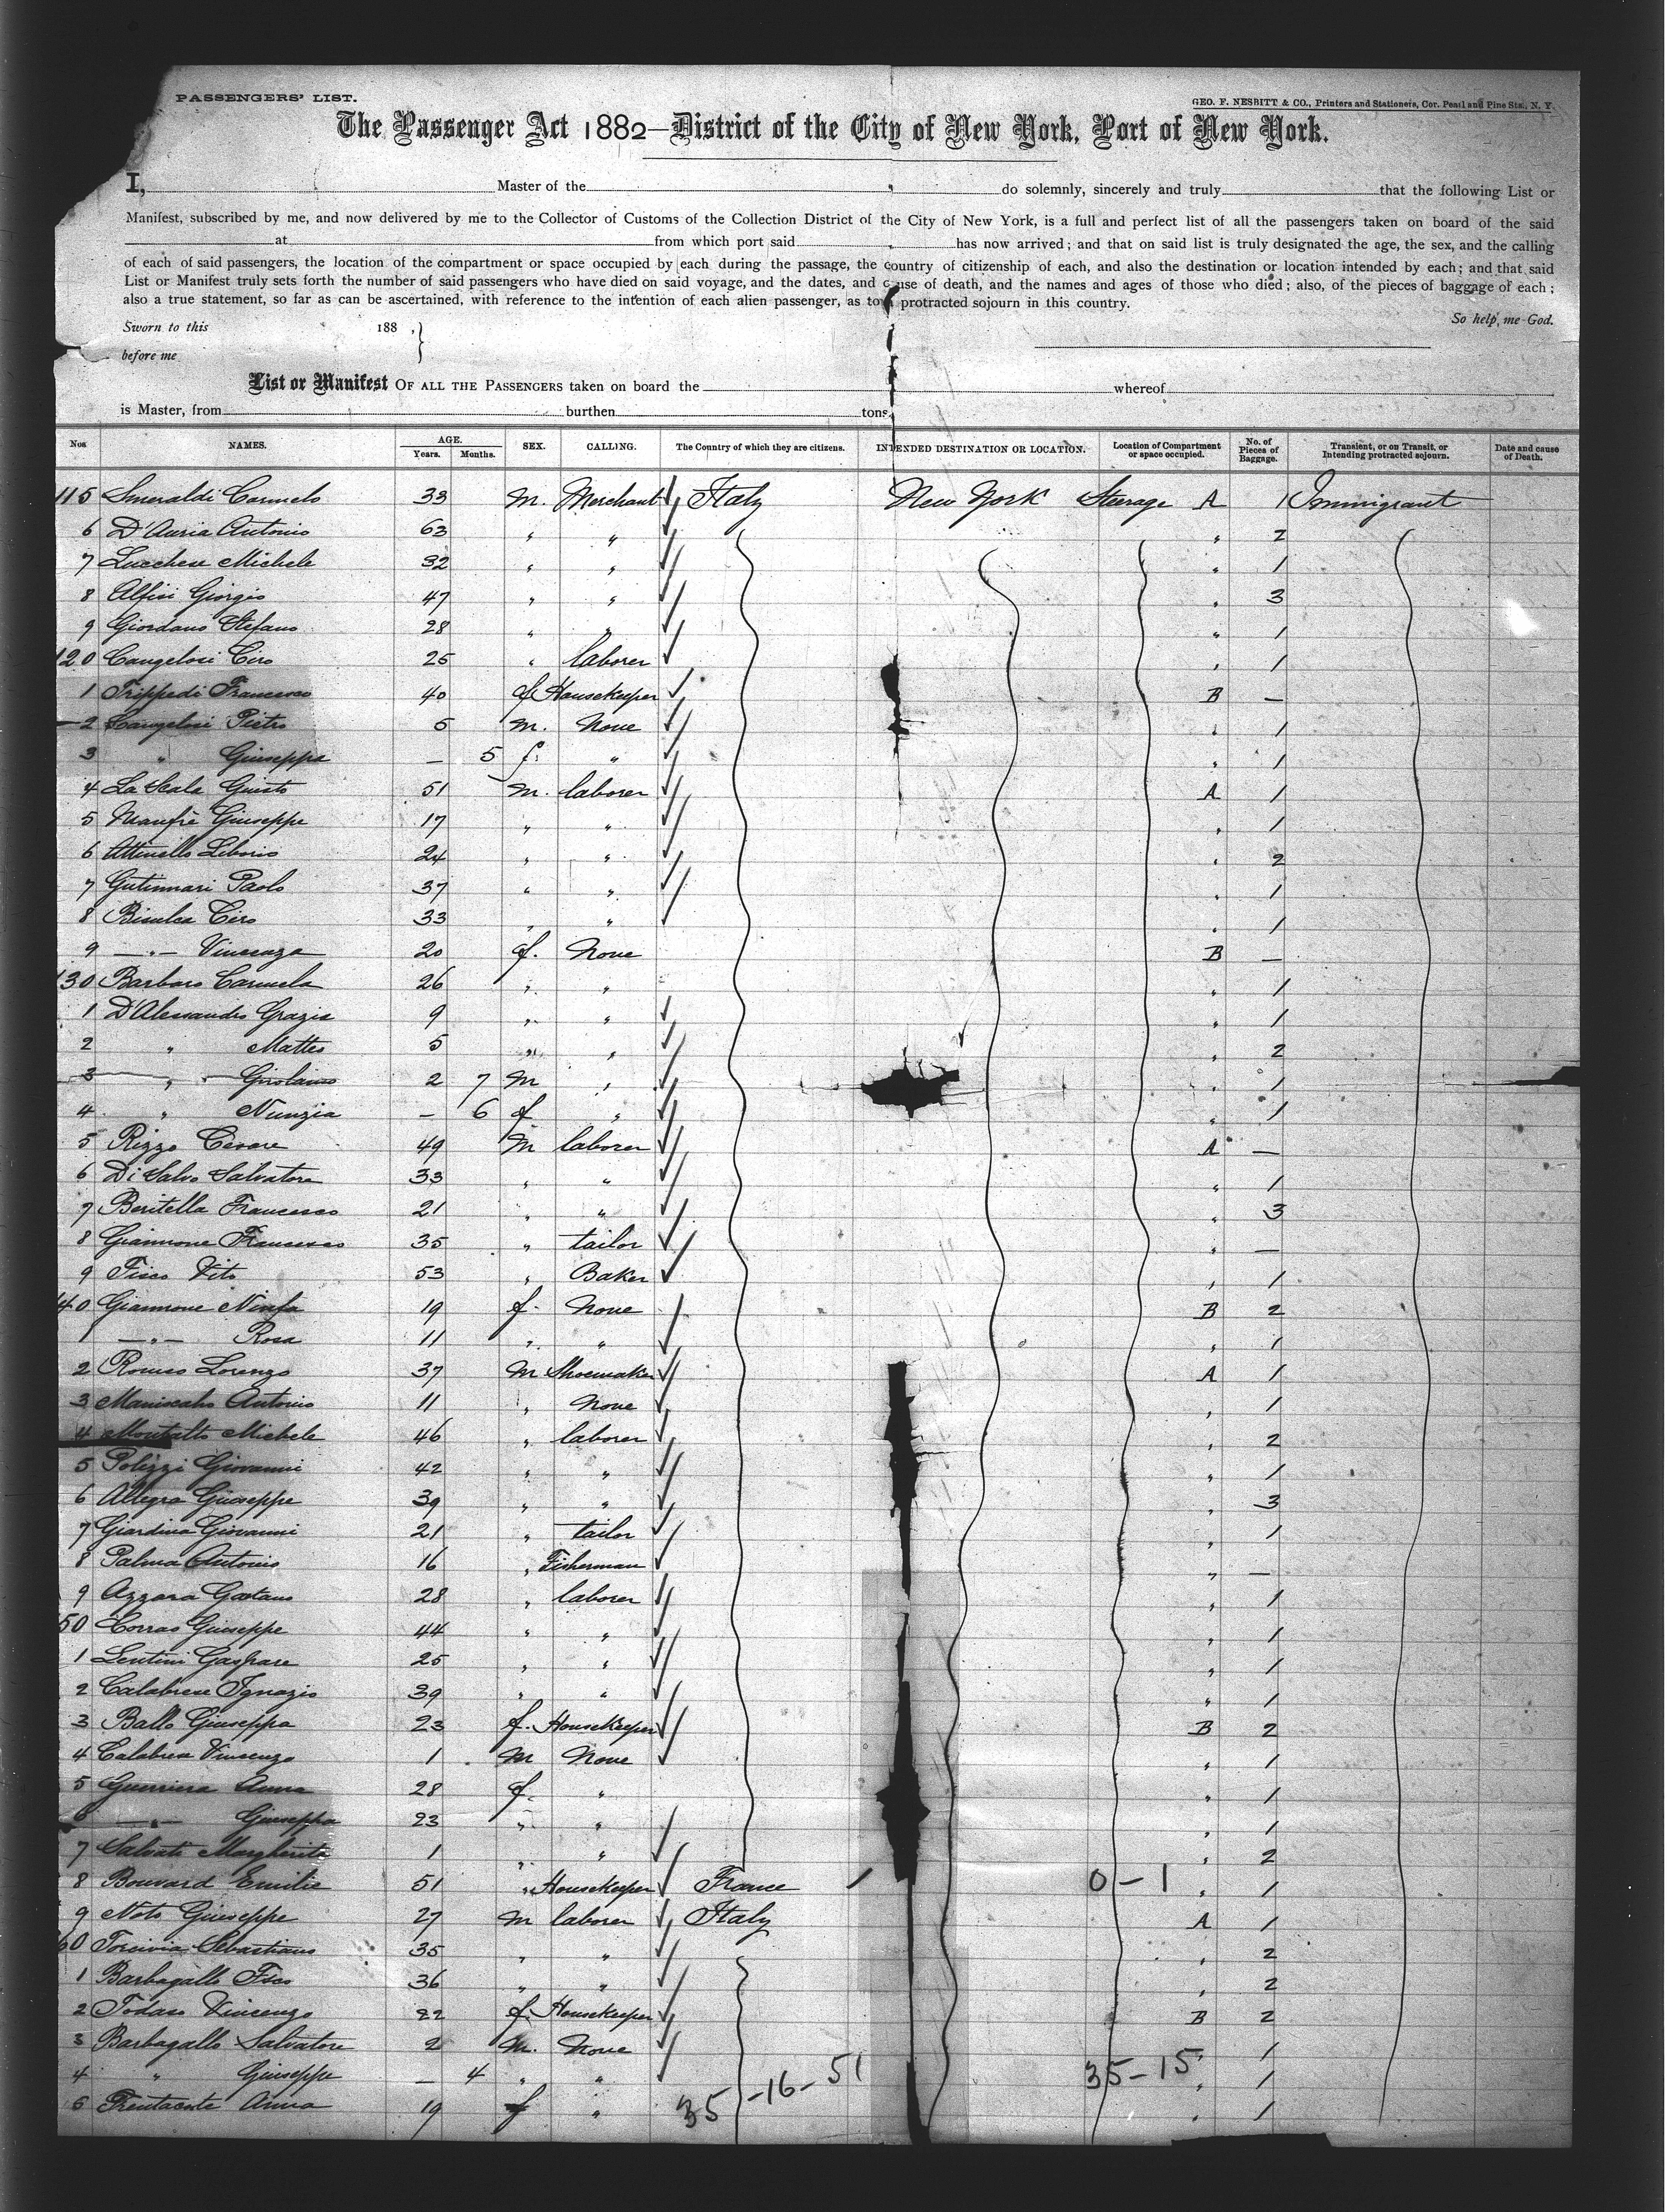 PASSENGERS' LIST.
GEO. F. NESBITT & CO., Printers and Stationers, Cor. Pearl and Pine Sts., N. Y.
The Passenger Act 1882—District of the City of New York, Port of New York.
I, Master of the do solemnly, sincerely and truly that the following List or
Manifest, subscribed by me, and now delivered by me to the Collector of Customs of the Collection District of the City of New York, is a full and perfect list of all the passengers taken on board of the said
at from which port said has now arrived; and that on said list is truly designated the age, the sex, and the calling
of each of said passengers, the location of the compartment or space occupied by each during the passage, the country of citizenship of each, and also the destination or location intended by each; and that said
List or Manifest truly sets forth the number of said passengers who have died on said voyage, and the dates, and cause of death, and the names and ages of those who died; also, of the pieces of baggage of each;
also a true statement, so far as can be ascertained, with reference to the intention of each alien passenger, as to protracted sojourn in this country.
Sworn to this 188 , } So help me God.
before me
List or Manifest OF ALL THE PASSENGERS taken on board the whereof
is Master, from burthen tons
Nos NAMES. AGE. Years. Months. SEX. CALLING. The Country of which they are citizens. INTENDED DESTINATION OR LOCATION. Location of Compartment or space occupied. No. of Pieces of Baggage. Transient, or on Transit, or Intending protracted sojourn. Date and cause of Death.
115 Smeraldi Carmelo 33 M. Merchant Italy New York Steerage A 1 Immigrant
6 D'Auria Antonio 63 " " " 2
7 Lucchese Michele 32 " " " 1
8 Alfisi Giorgio 47 " " " 3
9 Giordano Stefano 28 " " " 1
120 Cangelosi Ciro 25 " laborer " 1
1 Trippedi Francesco 40 f Housekeeper B —
2 Cangelosi Pietro 5 M. None " 1
3 " Giuseppa — 5 f. " " 1
4 La Scala Giusto 51 M. laborer A 1
5 Manfrè Giuseppe 17 " " " 1
6 Attinello Liborio 24 " " " 2
7 Gutinnari Paolo 37 " " " 1
8 Bisulca Ciro 33 " " " 1
9 —"— Vincenza 20 f. None B —
130 Barbaro Carmela 26 " " " 1
1 D'Alessandro Grazia 9 " " " 1
2 " Matteo 5 " " " 2
3 " Girolamo 2 7 M " " 1
4 " Nunzia — 6 f " " 1
5 Rizzo Cesare 49 M laborer A —
6 Di Salvo Salvatore 33 " " " 1
7 Beritella Francesco 21 " " " 3
8 Giannone Francesco 35 " tailor " —
9 Fisco Vito 53 " Baker " 1
140 Giannone Ninfa 19 f. None B 2
1 —"— Rosa 11 " " " 1
2 Romeo Lorenzo 37 M Shoemaker A 1
3 Maniscalco Antonio 11 " None " 1
4 Montalto Michele 46 " laborer " 2
5 Polizzi Giovanni 42 " " " 1
6 Allegra Giuseppe 39 " " " 3
7 Giardina Giovanni 21 " tailor " 1
8 Palma Antonio 16 " Fisherman " —
9 Azzara Gaetano 28 " laborer " 1
50 Corrao Giuseppe 44 " " " 1
1 Lentini Gaspare 25 " " " 1
2 Calabrese Ignazio 39 " " " 1
3 Ballo Giuseppa 23 f. Housekeeper B 2
4 Calabrese Vincenzo 1 M None " 1
5 Guerriera Anna 28 f. " " 1
6 —"— Giuseppa 23 " " " 1
7 Salvati Margherita 1 " " " 2
8 Bouvard Emilie 51 " Housekeeper France 1 0-1 " 1
9 Noto Giuseppe 27 M laborer Italy A 1
60 Torcivia Sebastiano 35 " " " 2
1 Barbagallo Fsco 36 " " " 2
2 Todaro Vincenza 22 f. Housekeeper B 2
3 Barbagallo Salvatore 2 M. None " 1
4 " Giuseppe — 4 " " " 1
5 Trentacoste Anna 19 f " " 1
35-16-51 35-15